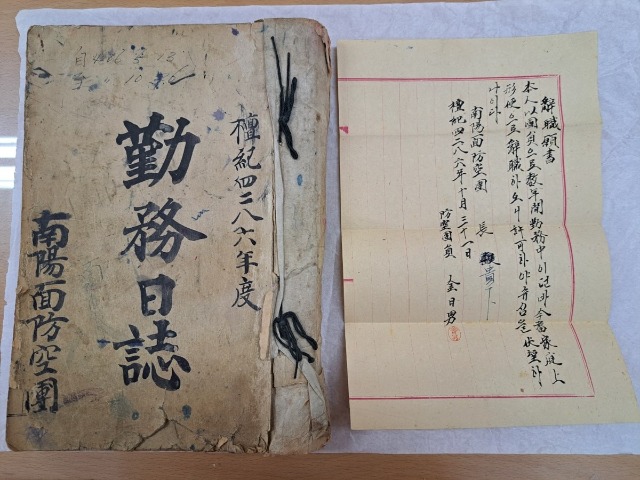 檀紀四二八六年度
勤務日誌
南陽面防空團
解職願書
本人以團員으로数年間勤務中이던바今番家庭上
形便으로解職하오니許可하야주심을伏望하
나이다
檀紀四二八六年十月三十一日
南陽面防空團長 貴下
防空團員 金日男